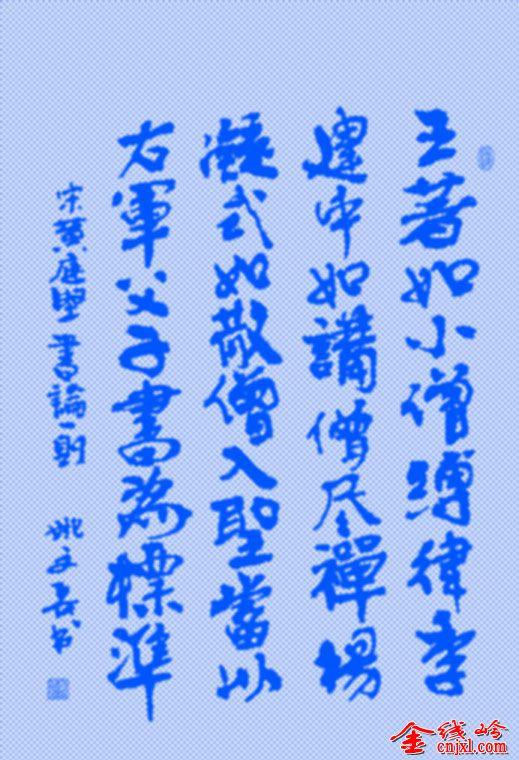 王著如小僧縛律李
建中如講僧尽禪楊
凝式如散僧入聖當以
右軍父子書為標準
宋黄庭堅書論一則
金线岭
cnjxl.com